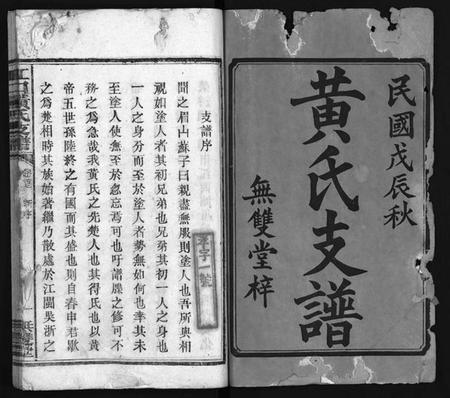 民國戊辰秋
黃氏支譜
無雙堂梓
支譜序
聞之眉山蘇子曰親盡無服則塗人也吾所與相
視如塗人者其初兄弟也兄弟其初一人之身也
一人之身分而至於塗人者勢無如何也幸其未
至於塗人使無至於忽忘焉可也吁譜牒之修可不
務之為急哉我黃氏之先楚人也其得氏也以黃
帝五世孫陸終之有國而其盛也則自春申君歇
之為楚相時其族始著繼乃散處於江閩吳浙之
孝字一號
黃氏支譜